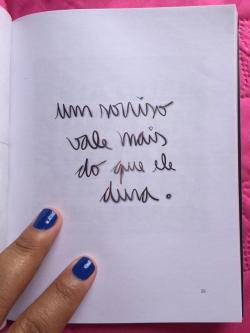 um sorriso
vale mais
do que ele
dura.